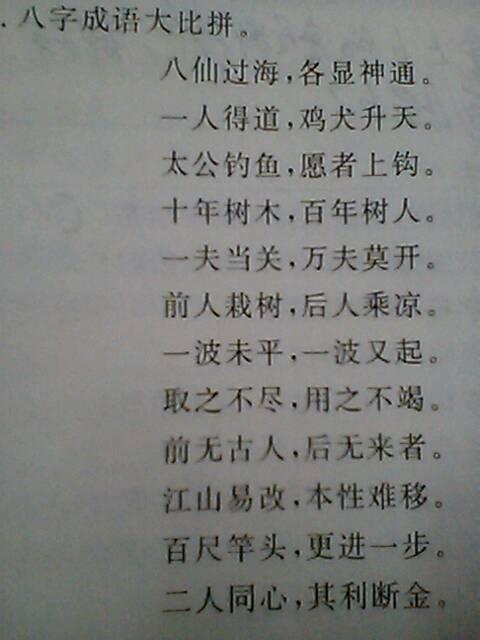 .八字成语大比拼。
八仙过海,各显神通。
一人得道,鸡犬升天。
太公钓鱼,愿者上钩。
十年树木,百年树人。
一夫当关,万夫莫开。
前人栽树,后人乘凉。
一波未平,一波又起。
取之不尽,用之不竭。
前无古人,后无来者。
江山易改,本性难移。
百尺竿头,更进一步。
二人同心,其利断金。